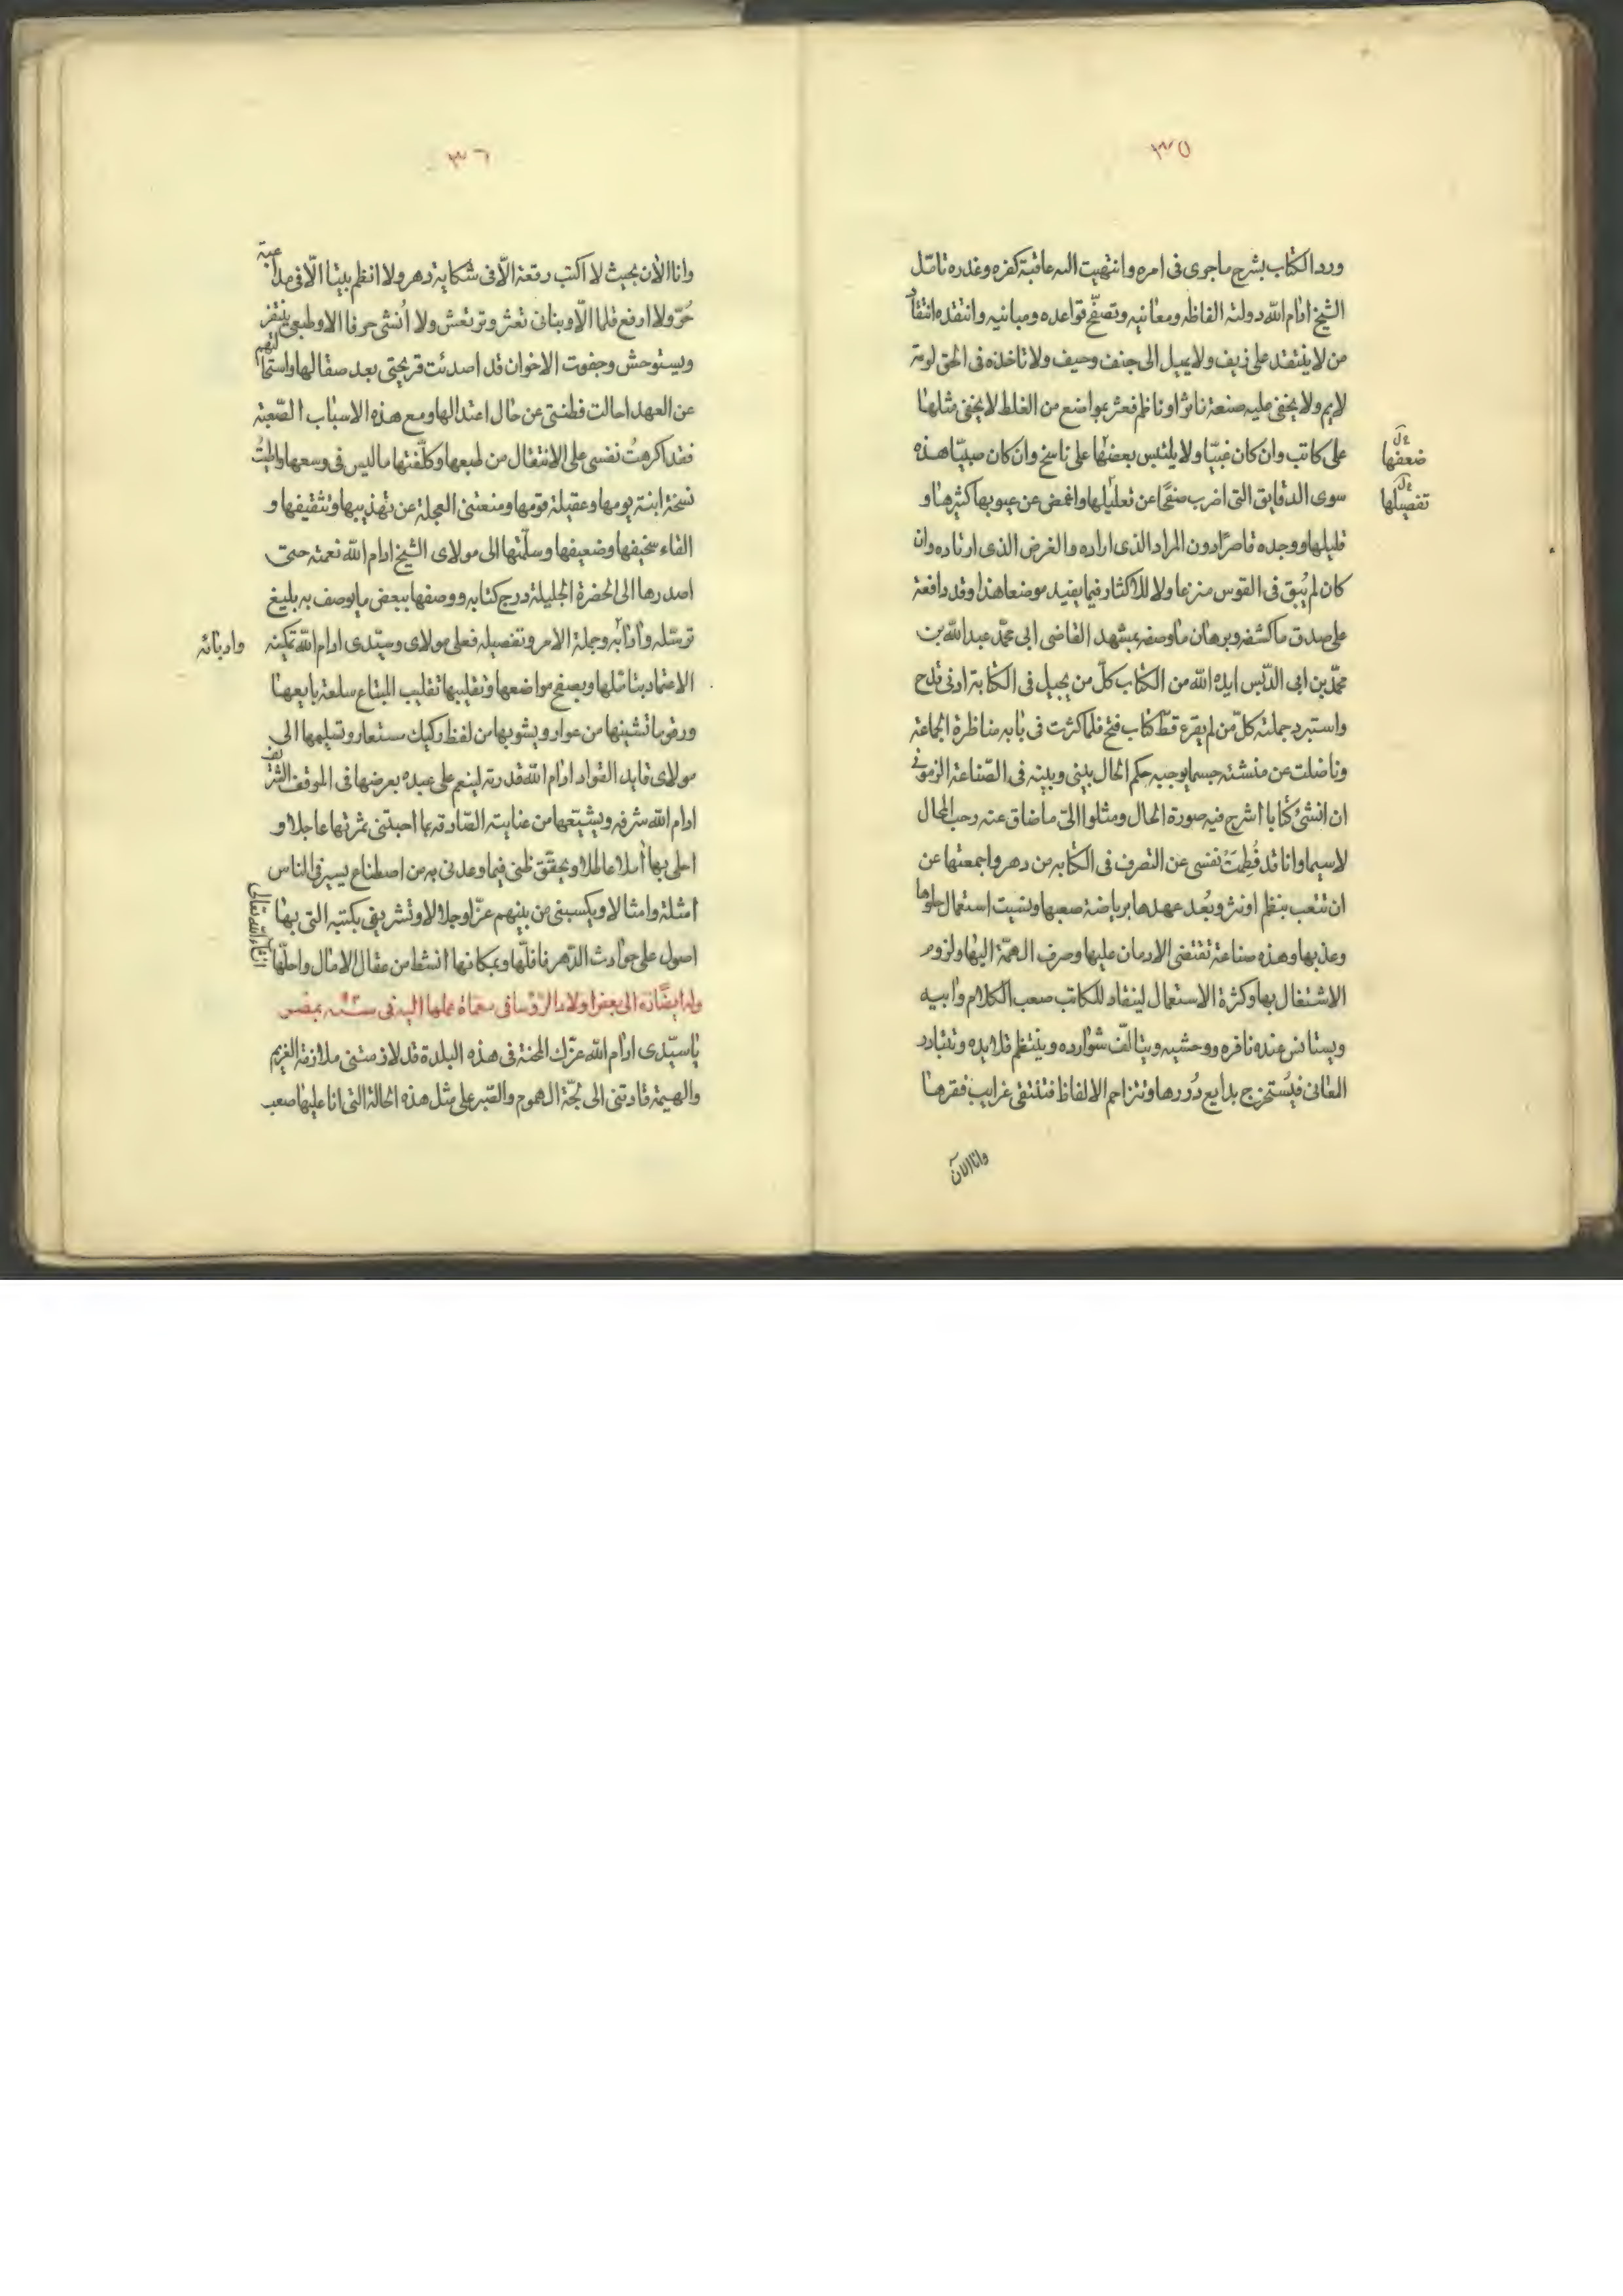 ٣٥
ورد الكتاب بشرح ماجرى فى امره وانتهيت اليه عاقبة كفره وغدره تامّل
الشيخ ادام الله دولته الفاظه ومعانيه وتصفّح قواعده ومبانيه وانتقده انتقاد
من لا ينتقد على زيف ولا يميل الى جنف وحيف ولا تاخذه فى الحق لومة
لايم ولا يخفى عليه صنعة ناثر او ناظم فعثر بمواضع من الغلط لا يخفى مثلها
على كاتب وان كان غبيّا ولا يلتبس بعضها على ناسخ وان كان صبيّا هذه
ضعفها
سوى الدقايق التى اضرب صفحًا عن تعليلها واغمض عن عيوبها كثيرها و
تفصيلها
قليلها ووجده قاصرًا دون المراد الذى اراده والغرض الذى ارتاده وان
كان لم يُبق فى القوس منزعا ولا للاكثار فيما يفيد موضعا هذا وقد دافعة
على صدق ما كشفه وبرهان ما وصفه بمشهد القاضى ابى محمّد عبد الله بن
محمّد بن ابى الدّبس ايده الله من الكتاب كلّ من يجيل فى الكتابة ادنى قدح
واستبرد جملته كلّ من لم يقرع قطّ كتاب فتح فلما كثرت فى بابه مناظرة الجماعة
وناضلت عن منشئه حسبما يوجبه حكم الحال بينى وبينه فى الصّناعة الزمونى
ان انشئ كتابا اشرح فيه صورة الحال ومثلوا الىّ ما ضاق عنه رحب المجال
لاسيما وانا قد فُطِمَتْ نفسى عن التصرف فى الكتابه من دهر واجمعتها عن
ان تتعب بنظم او نثر وبُعد عهدها برياضة صعبها ونسيت استعمال حلوها
وعذبها وهذه صناعة تقتضى الادمان عليها وصرف الهمّة اليها ولزوم
الاشتغال بها وكثرة الاستعمال لينقاد للكاتب صعب الكلام وابيه
ويستانس عنده نافره ووحشيه ويتالّف شوارده وينتظم قلايده وتتبادر
المعانى فيُستخرج بدايع دُررها وتتزاحم الالفاظ فتنتقى غرايب فقرها
وانا الآن
٣٦
وانا الآن بحيث لا اكتب رقعة الّا فى شكاية دهر ولا انظم بيتا الّا فى مداعبة
حُرّ ولا ارفع قلما الّا وبنانى تعثر وترتعش ولا اُنشى حرفا الا وطبعى ينفر
ويستوحش وجفوت الاخوان قد اصدئت قريحتى بعد صقالها واستحالتهم
عن العهد احالت فطنتى عن حال اعتدالها ومع هذه الاسباب الصّعبة
فقد اكرهتُ نفسى على الانتقال من طبعها وكلّفتها ما ليس فى وسعها واثبتُ
نسخة ابنة يومها وعقيلة قومها ومنعتنى العجلة عن تهذيبها وتثقيفها و
القاء سخيفها وضعيفها وسلّمتها الى مولاى الشيخ ادام الله نعمته حتى
اصدرها الى الحضرة الجليلة درج كتابه ووصفها ببعض ما يوصف به بليغ
ترسّله وادابه وجملة الامر وتفصيله فعلى مولاى وسيّدى ادام الله تمكينه
وادبائه
الاعتماد بتامّلها وبصفح مواضعها وتقليبها تقليب المبتاع سلعة بايعها
ورمّ ما تشينها من عوار ويشوبها من لفظ ركيك مستعار وتسليمها الى
مولاى قايد القواد ادام الله قدرته لينعم على عبده بعرضها فى الموقف الشريف
ادام الله شرفه ويشيّعها من عنايته الصّادقة بما اجتنى ثمرتها عاجلا و
احلى بها املا عاطلا ويحقّق ظنى فيما وعدنى به من اصطناع يسير فى الناس
امثلة وامثالا ويكسبنى من بينهم عزّا وجلالا وتشريفى بكتبه التى بها
اصول على حوادث الدّهر فافلّها وبمكانها انشط من عقال الامال واحلّها
انشاءالله تعالى
وله ايضًا الى بعض اولاد الرّؤسا فى معماة عملها اليه فى سنه بمصر
يا سيّدى ادام الله عزّك المحنة فى هذه البلدة قد لازمتنى ملازمة الغريم
والهيمة قادتنى الى لجّة الهموم والصّبر على مثل هذه الحالة التى انا عليها صعب